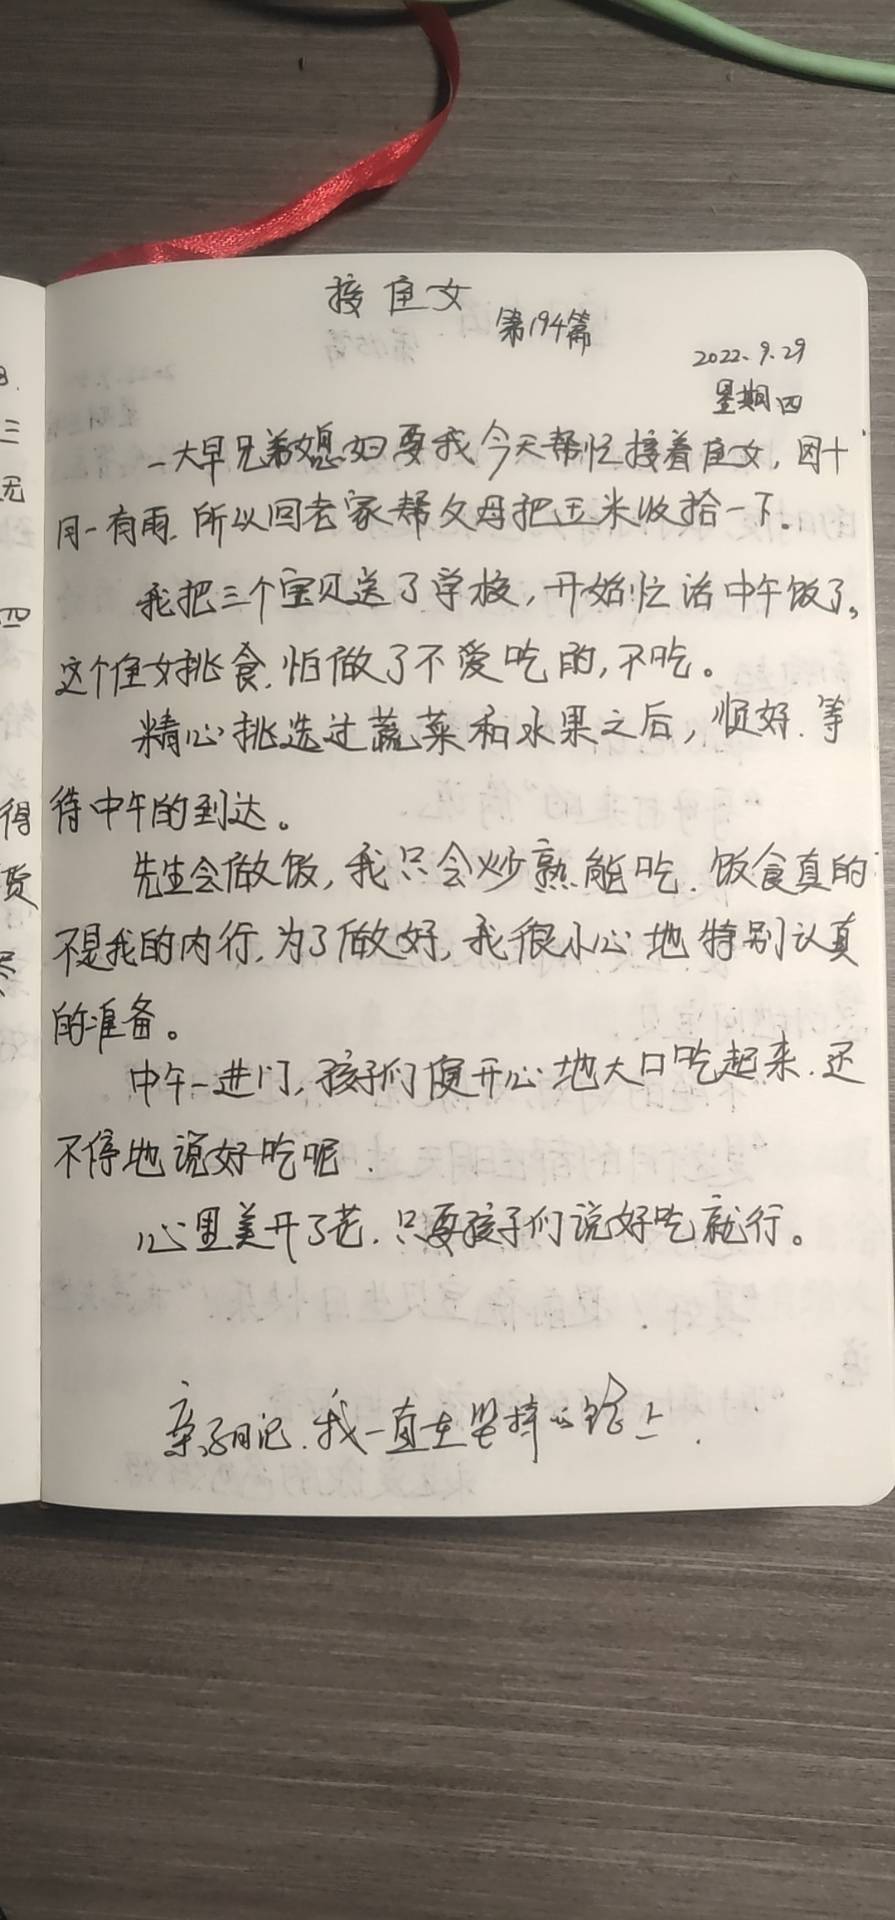 接侄女
第194篇
2022.9.29
星期四
一大早兄弟媳妇要我今天帮忙接着侄女,因十
月一有雨.所以回老家帮父母把玉米收拾一下。
我把三个宝贝送了学校,开始忙活中午饭了,
这个侄女挑食.怕做了不爱吃的,不吃。
精心挑选过蔬菜和水果之后,顺好.等
待中午的到达。
先生会做饭,我只会炒熟能吃.饭食真的
不是我的内行,为了做好,我很小心地特别认真
的准备。
中午一进门,孩子们便开心地大口吃起来.还
不停地说好吃呢.
心里美开了花.只要孩子们说好吃就行。
亲子日记.我一直在坚持的路上.
三
无
四
得
费